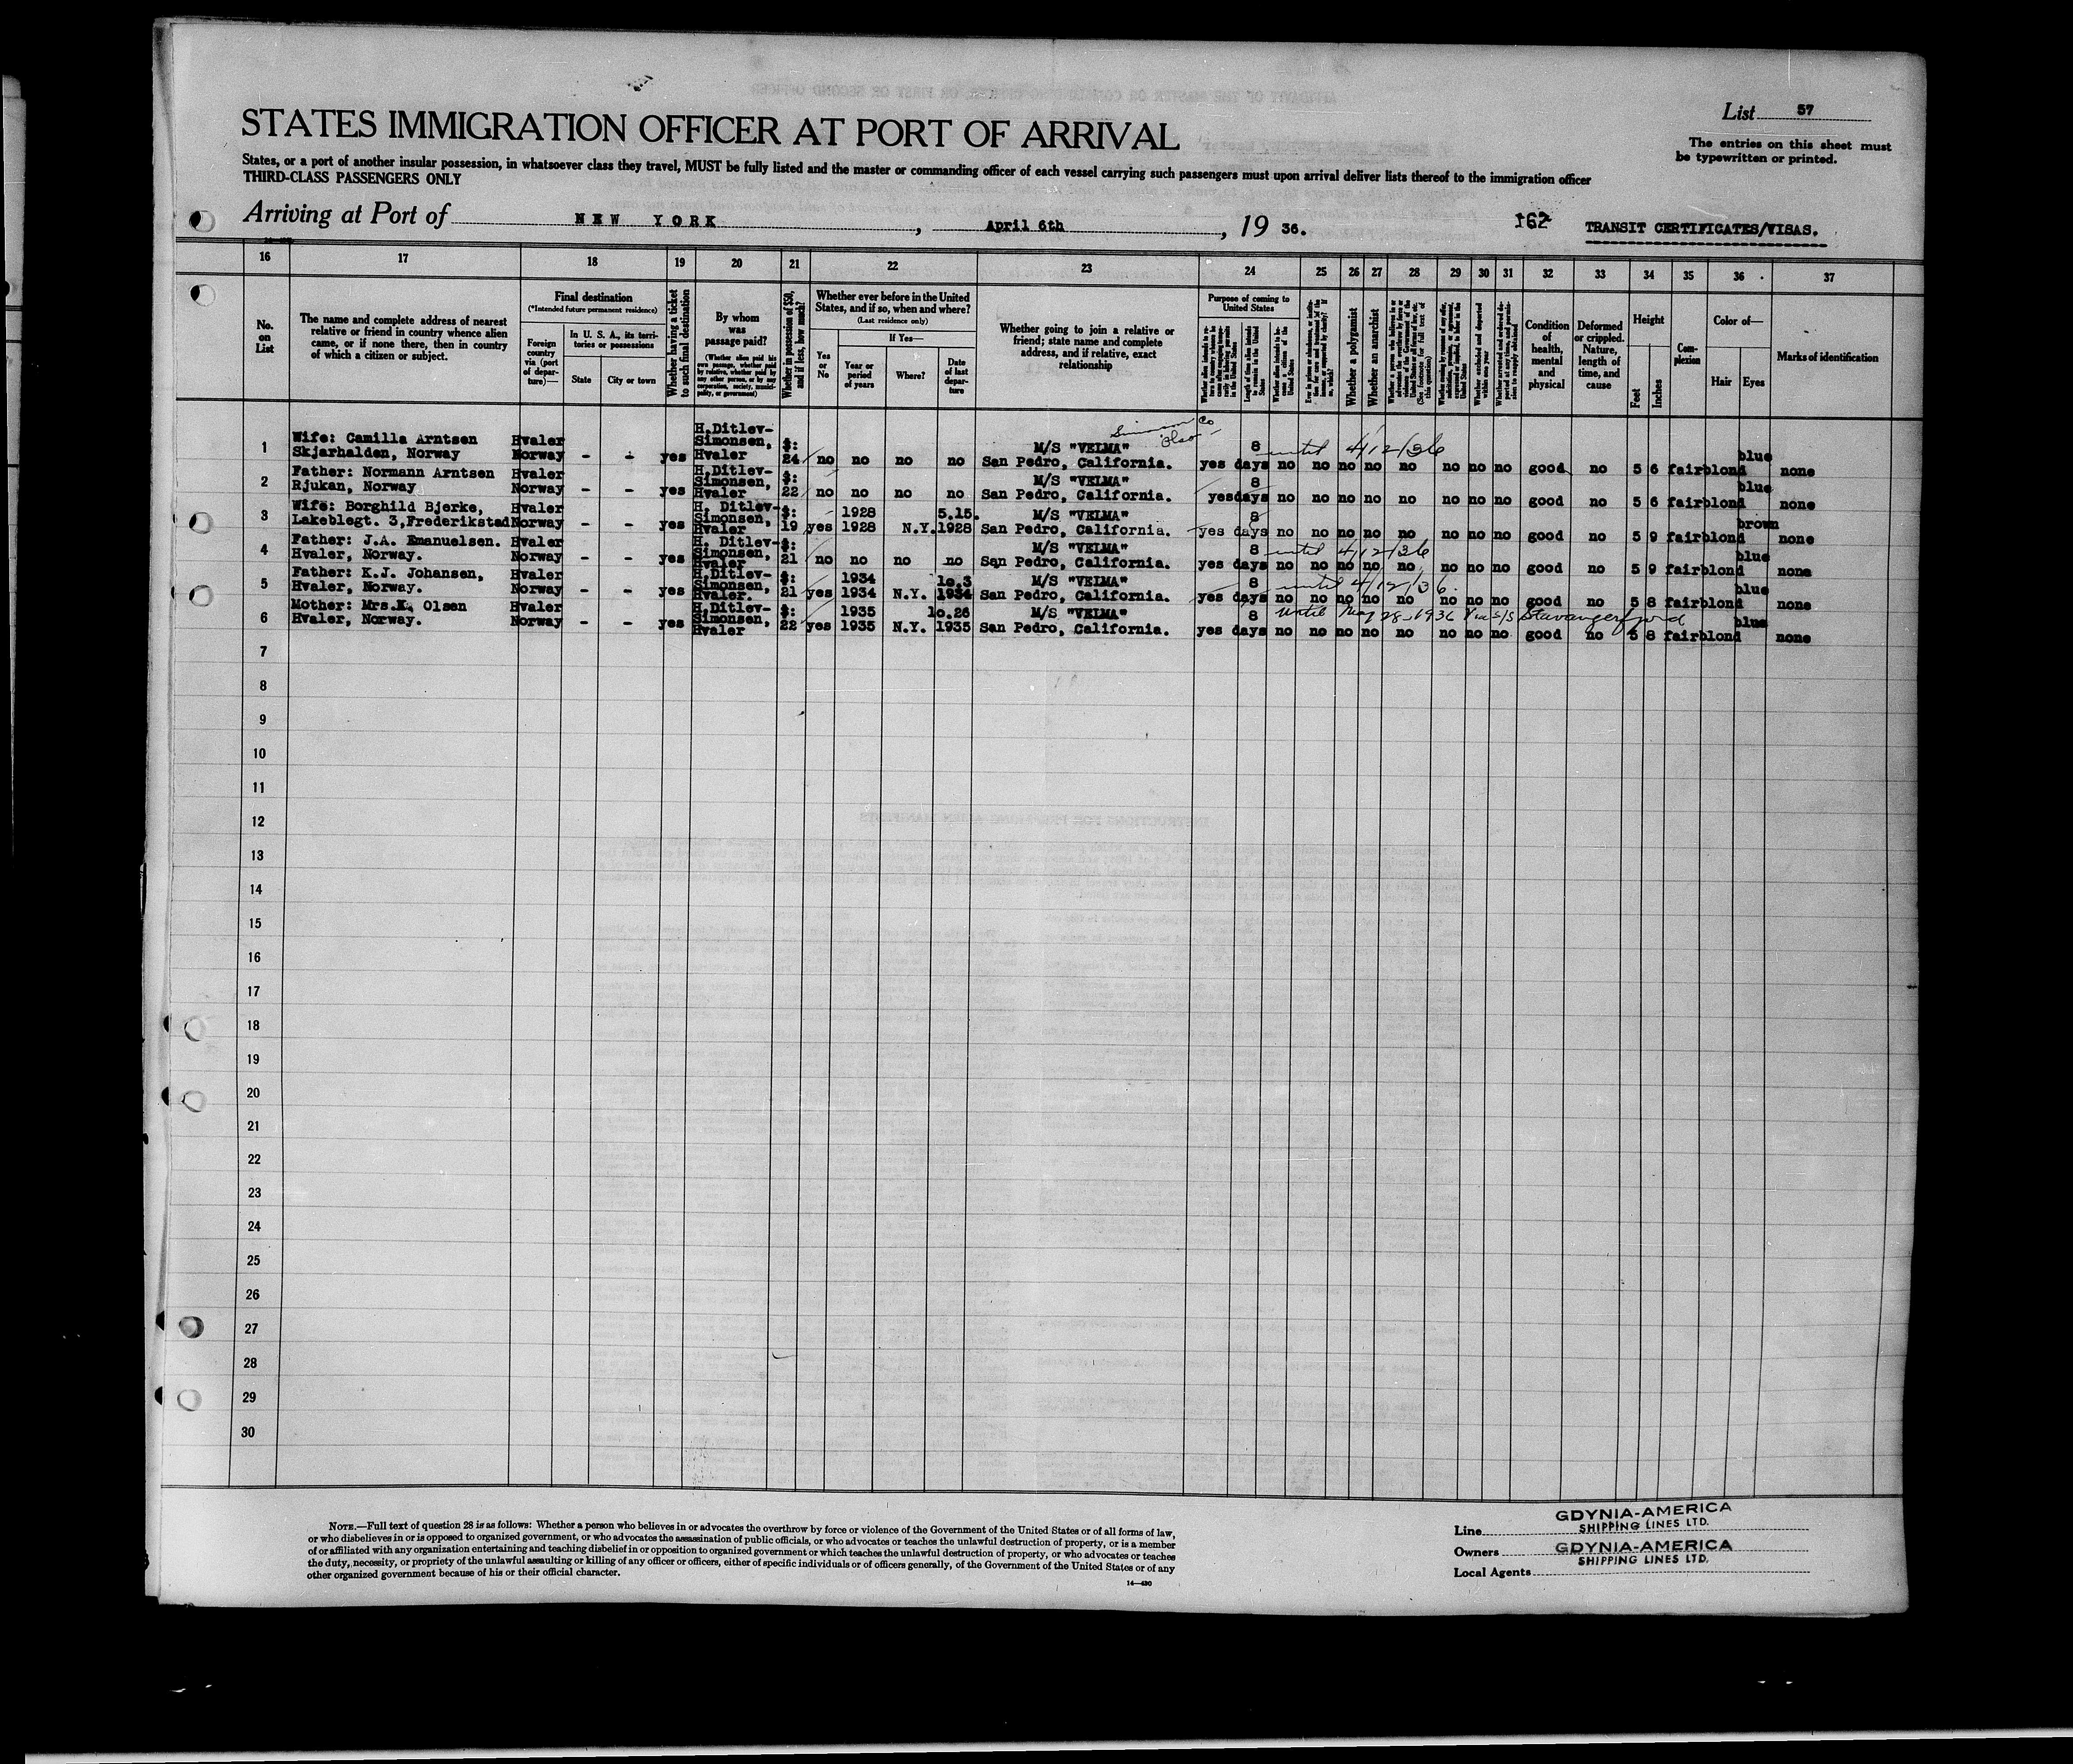 List 57
STATES IMMIGRATION OFFICER AT PORT OF ARRIVAL
The entries on this sheet must
be typewritten or printed.
States, or a port of another insular possession, in whatsoever class they travel, MUST be fully listed and the master or commanding officer of each vessel carrying such passengers must upon arrival deliver lists thereof to the immigration officer
THIRD-CLASS PASSENGERS ONLY
Arriving at Port of NEW YORK, April 6th, 1936.
162 TRANSIT CERTIFICATES/VISAS.
16 17 18 19 20 21 22 23 24 25 26 27 28 29 30 31 32 33 34 35 36 37
No.
on
List
The name and complete address of nearest
relative or friend in country whence alien
came, or if none there, then in country
of which a citizen or subject.
Final destination
(*Intended future permanent residence)
Foreign
country
via (port
of depar-
ture)—
In U. S. A., its terri-
tories or possessions
State
City or town
Whether having a ticket
to such final destination
By whom
was
passage paid?
(Whether alien paid his
own passage, whether paid
by relative, whether paid by
any other person, or by any
corporation, society, munici-
pality, or government)
Whether in possession of $50,
and if less, how much?
Whether ever before in the United
States, and if so, when and where?
(Last residence only)
Yes
or
No
If Yes—
Year or
period
of years
Where?
Date
of last
depar-
ture
Whether going to join a relative or
friend; state name and complete
address, and if relative, exact
relationship
Purpose of coming to
United States
Whether a polygamist
Whether an anarchist
Condition
of
health,
mental
and
physical
Deformed
or crippled.
Nature,
length of
time, and
cause
Height
Feet
Inches
Com-
plexion
Color of—
Hair
Eyes
Marks of identification
1 Wife: Camilla Arntsen Hvaler H.Ditlev-Simonsen, $: M/S "VELMA" 8 until 4/12/36 blue
Skjarhalden, Norway Norway - - yes Hvaler 24 no no no no San Pedro, California. yes days no no no no no no no no good no 5 6 fair blond none
2 Father: Normann Arntsen Hvaler H.Ditlev-Simonsen, $: M/S "VELMA" 8 blue
Rjukan, Norway Norway - - yes Hvaler 22 no no no no San Pedro, California. yes days no no no no no no no no good no 5 6 fair blond none
3 Wife: Borghild Bjerke, Hvaler H. Ditlev-Simonsen, $: 1928 5.15. M/S "VELMA" 8 brown
Lakeblegt. 3, Frederikstad Norway - - yes Hvaler 19 yes 1928 N.Y. 1928 San Pedro, California. yes days no no no no no no no no good no 5 9 fair blond none
4 Father: J.A. Emanuelsen. Hvaler H. Ditlev-Simonsen, $: M/S "VELMA" 8 until 4/12/36 blue
Hvaler, Norway. Norway - - yes Hvaler 21 no no no no San Pedro, California. yes days no no no no no no no no good no 5 9 fair blond none
5 Father: K.J. Johansen, Hvaler H.Ditlev-Simonsen, $: 1934 10.3 M/S "VELMA" 8 until 4/12/36. blue
Hvaler, Norway. Norway - - yes Hvaler. 21 yes 1934 N.Y. 1934 San Pedro, California. yes days no no no no no no no no good no 5 8 fair blond none
6 Mother: Mrs.K. Olsen Hvaler H.Ditlev-Simonsen, $: 1935 10.26 M/S "VELMA" 8 Until May 28-1936 Via S/S Stavangerfjord blue
Hvaler, Norway. Norway - - yes Hvaler 22 yes 1935 N.Y. 1935 San Pedro, California. yes days no no no no no no no no good no 5 8 fair blond none
7
8
9
10
11
12
13
14
15
16
17
18
19
20
21
22
23
24
25
26
27
28
29
30
NOTE.—Full text of question 28 is as follows: Whether a person who believes in or advocates the overthrow by force or violence of the Government of the United States or of all forms of law,
or who disbelieves in or is opposed to organized government, or who advocates the assassination of public officials, or who advocates or teaches the unlawful destruction of property, or is a member
of or affiliated with any organization entertaining and teaching disbelief in or opposition to organized government or which teaches the unlawful destruction of property, or who advocates or teaches
the duty, necessity, or propriety of the unlawful assaulting or killing of any officer or officers, either of specific individuals or of officers generally, of the Government of the United States or of any
other organized government because of his or their official character.
14—430
Line GDYNIA-AMERICA
SHIPPING LINES LTD.
Owners GDYNIA-AMERICA
SHIPPING LINES LTD.
Local Agents